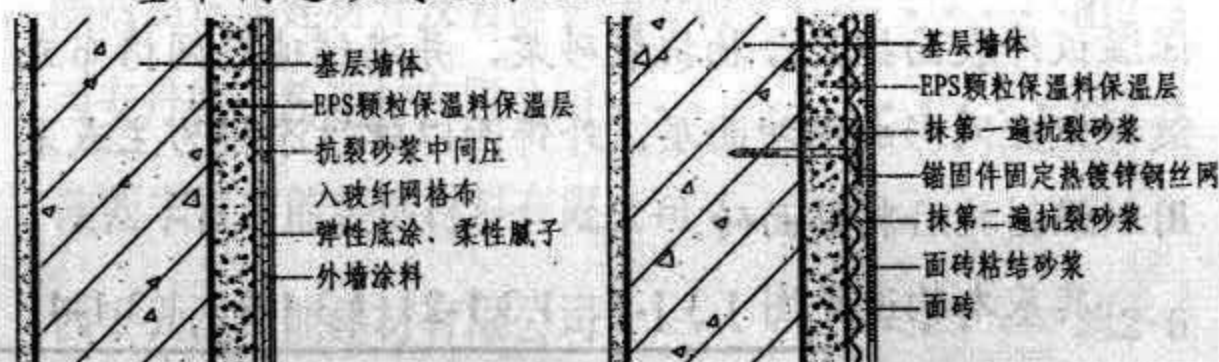 基层墙体
EPS颗粒保温料保温层
抗裂砂浆中间压
入玻纤网格布
弹性底涂、柔性腻子
外墙涂料
基层墙体
EPS颗粒保温料保温层
抹第一遍抗裂砂浆
锚固件固定热镀锌钢丝网
抹第二遍抗裂砂浆
面砖粘结砂浆
面砖